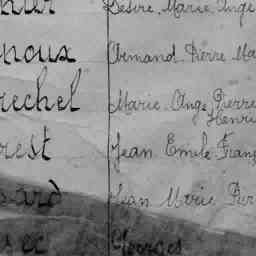 Désiré, Marie Ange
noux Armand Pierre Ma
rechel Marie Ange Pierre
Henri
rest Jean Emile Franç
sard Jean Marie Pier
Georges